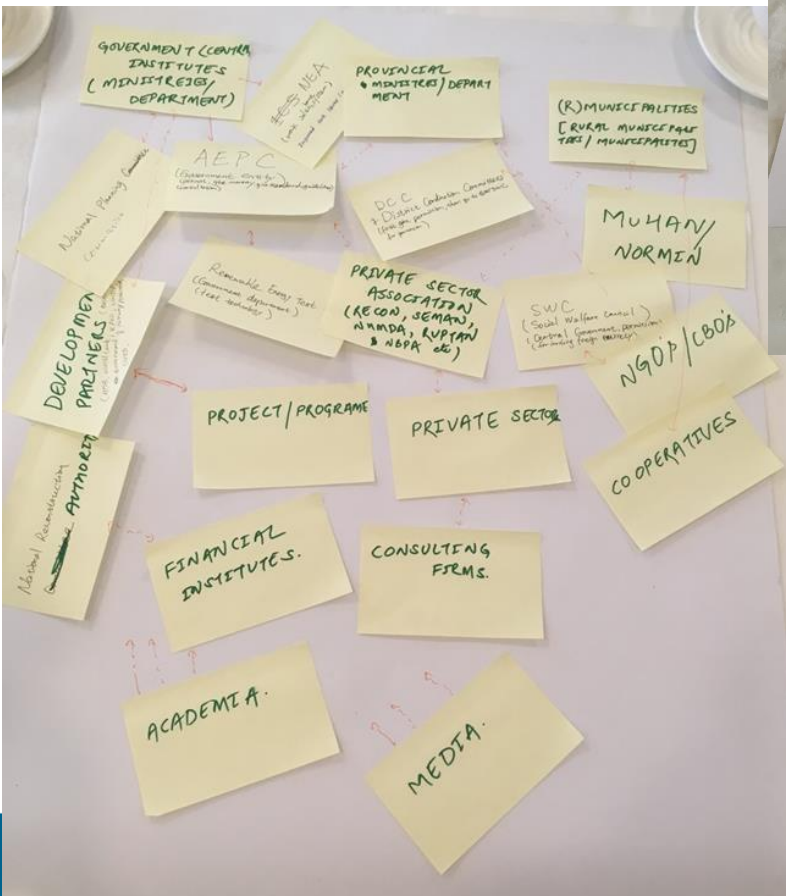 GOVERNMENT (CENTRA
INSTITUTES
(MINISTREIES/
DEPARTMENT)
NEA
PROVINCIAL
• MINISTRES/DEPART
MENT
(R)MUNICIPALITIES
[RURAL MUNICIPALI
TIES/MUNICIPALITES]
National Planning
AEPC
(Government entity)
DCC
District Cordination Committees
MUHAN/
NORMIN
Renewable Energy Test
(Government department)
(test technology)
PRIVATE SECTOR
ASSOCIATION
(RECON, SEMAN,
NMMDA, RUPTAN
& NBPA etc)
SWC
(Social Walfare Council)
(Central Government, permission
NGO'S/CBO'S
DEVELOPMEN
PARTNERS
PROJECT/PROGRAME
PRIVATE SECTOR
COOPERATIVES
National Reconstruction
AUTHORIT
FINANCIAL
INSTITUTES.
CONSULTING
FIRMS.
ACADEMIA.
MEDIA.